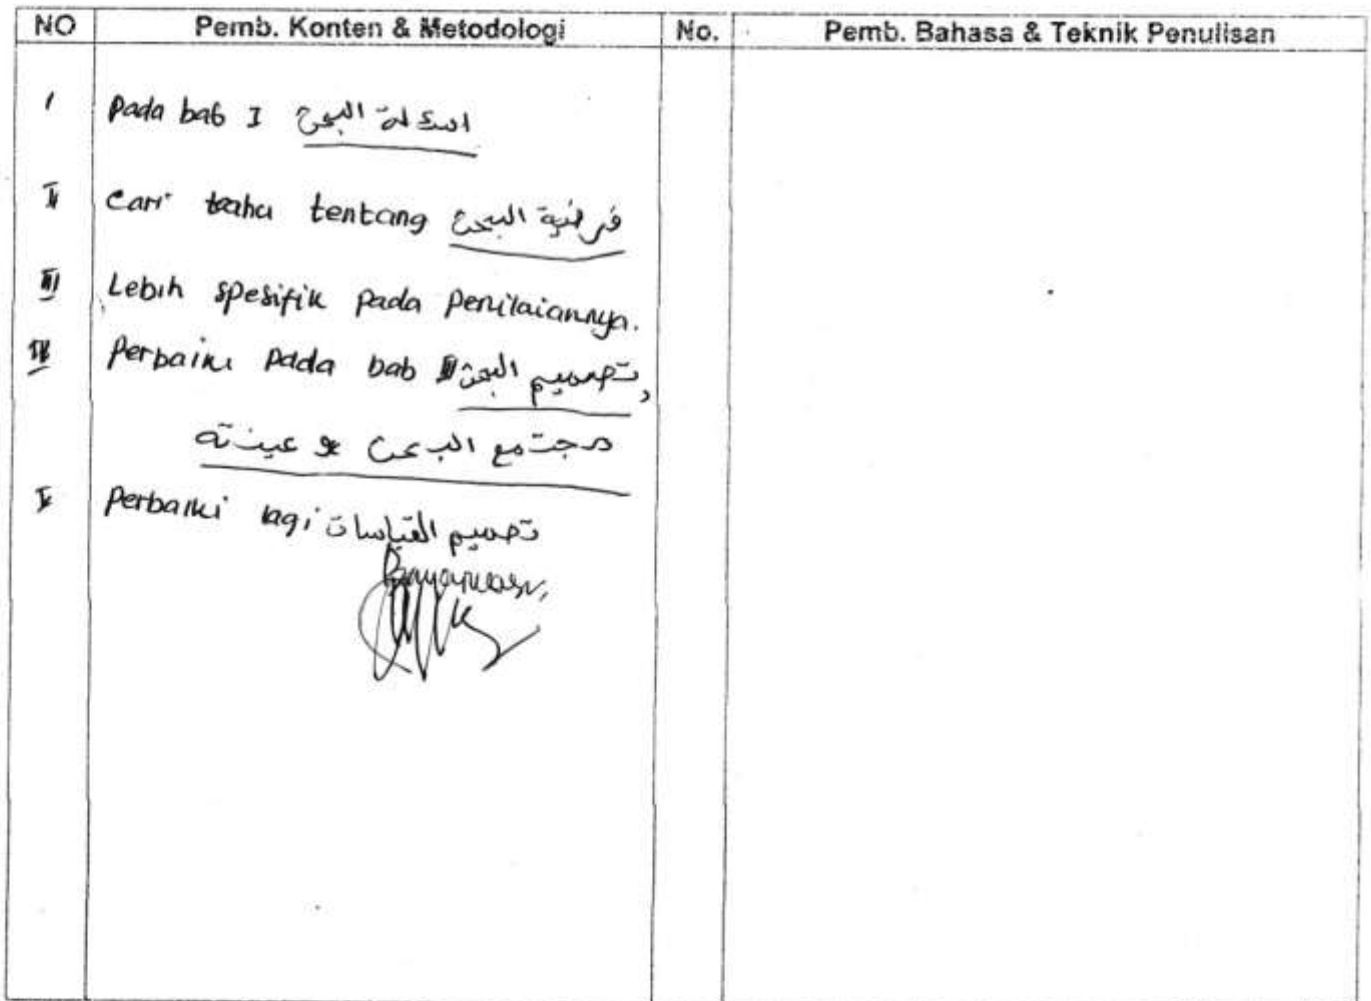 NO Pemb. Konten & Metodologi No. Pemb. Bahasa & Teknik Penulisan
I Pada bab I اسئلة البحث
II Cari tahu tentang فرضية البحث
III Lebih spesifik pada penilaiannya.
IV Perbaiki pada bab III تصميم البحث,
مجتمع البحث و عينته
V Perbaiki lagi تصميم القياسات